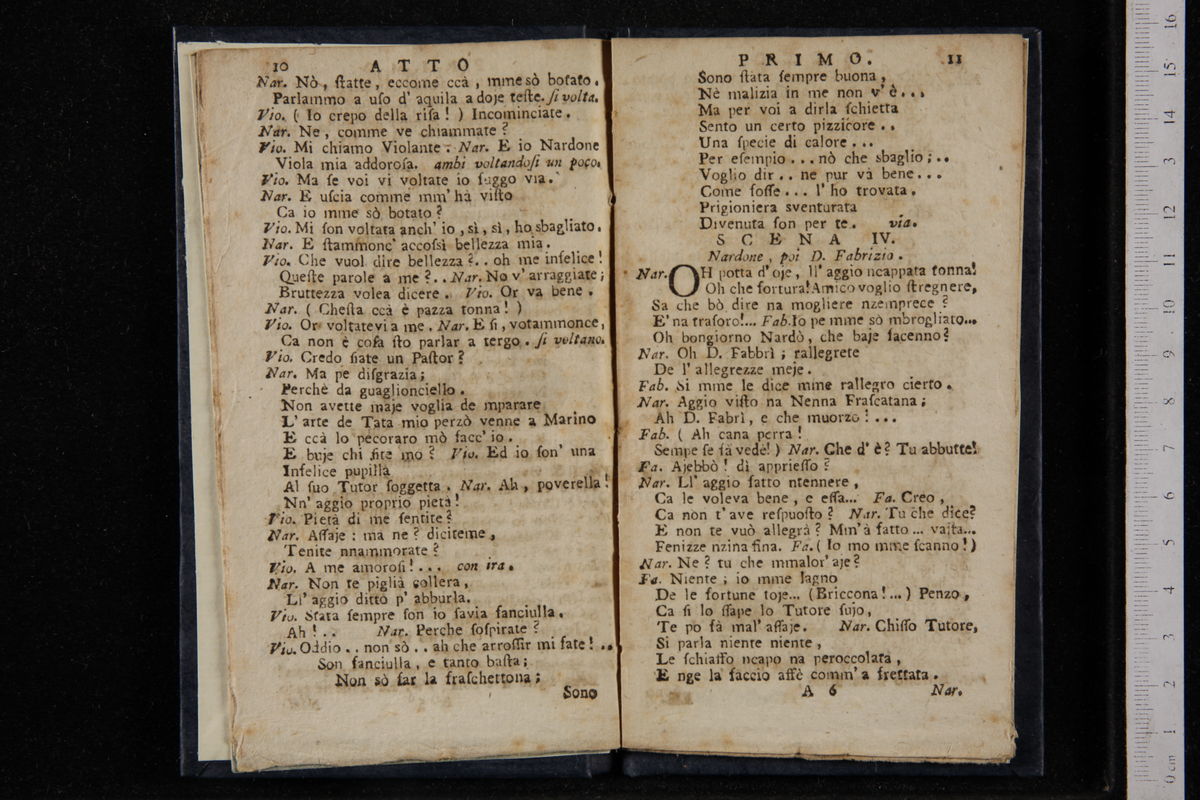 10 ATTO
Nar. Nò, ſtatte, eccome ccà, mme sò botato.
Parlammo a uſo d' aquila a doje teſte. ſi volta.
Vio. ( Io crepo della riſa! ) Incominciate.
Nar. Ne, comme ve chiammate?
Vio. Mi chiamo Violante. Nar. E io Nardone
Viola mia addoroſa. ambi voltandoſi un poco.
Vio. Ma ſe voi vi voltate io fuggo via.
Nar. E uſcia comme mm' hà viſto
Ca io mme sò botato?
Vio. Mi ſon voltata anch' io, sì, sì, ho sbagliato.
Nar. E ſtammonc' accoſsì bellezza mia.
Vio. Che vuol dire bellezza?.. oh me infelice!
Queſte parole a me?.. Nar. No v' arraggiate;
Bruttezza volea dicere. Vio. Or va bene.
Nar. ( Cheſta ccà è pazza tonna! )
Vio. Or voltatevi a me. Nar. E ſi, votammonce,
Ca non è coſa ſto parlar a tergo. ſi voltano.
Vio. Credo ſiate un Paſtor?
Nar. Ma pe diſgrazia;
Perchè da guaglionciello.
Non avette maje voglia de mparare
L' arte de Tata mio perzò venne a Marino
E ccà lo pecoraro mò facc' io.
E buje chi ſite mo? Vio. Ed io ſon' una
Infelice pupilla
Al ſuo Tutor ſoggetta. Nar. Ah, poverella!
Nn' aggio proprio pietà!
Vio. Pietà di me ſentite?
Nar. Aſſaje: ma ne? diciteme,
Tenite nnammorate?
Vio. A me amoroſi!... con ira.
Nar. Non te piglià collera,
Ll' aggio ditto p' abburla.
Vio. Stata ſempre ſon io ſavia fanciulla.
Ah!.. Nar. Perche ſoſpirate?
Vio. Oddio.. non sò.. ah che arroſſir mi fate!..
Son fanciulla, e tanto baſta;
Non sò far la fraſchettona;
Sono
PRIMO. 11
Sono ſtata ſempre buona,
Nè malizia in me non v' è...
Ma per voi a dirla ſchietta
Sento un certo pizzicore..
Una ſpecie di calore...
Per eſempio... nò che sbaglio;..
Voglio dir.. ne pur và bene...
Come foſſe... l' ho trovata.
Prigioniera sventurata
Divenuta ſon per te. via.
SCENA IV.
Nardone, poi D. Fabrizio.
Nar. OH potta d' oje, ll' aggio ncappata tonna!
Oh che fortura! Amico voglio ſtregnere,
Sa che bò dire na mogliere nzemprece?
E' na traforo!... Fab. Io pe mme sò mbrogliato...
Oh bongiorno Nardò, che baje facenno?
Nar. Oh D. Fabbrì; rallegrete
De l' allegrezze meje.
Fab. Si mme le dice mme rallegro cierto.
Nar. Aggio viſto na Nenna Fraſcatana;
Ah D. Fabrì, e che muorzo!...
Fab. ( Ah cana perra!
Sempe ſe fà vedè! ) Nar. Che d' è? Tu abbutte!
Fa. Ajebbò! dì apprieſſo?
Nar. Ll' aggio fatto ntennere,
Ca le voleva bene, e eſſa... Fa. Creo,
Ca non t' ave reſpuoſto? Nar. Tu che dice?
E non te vuò allegrà? Mm' à fatto... vaſta...
Fenizze nzina fina. Fa. ( Io mo mme ſcanno! )
Nar. Ne? tu che mmalor' aje?
Fa. Niente; io mme lagno
De le fortune toje... (Briccona!...) Penzo,
Ca ſi lo ſſape lo Tutore ſujo,
Te po fà mal' aſſaje. Nar. Chiſſo Tutore,
Si parla niente niente,
Le ſchiaffo ncapo na peroccolata,
E nge la faccio affè comm' a frettata.
A 6 Nar.
0 cm 1 2 3 4 5 6 7 8 9 10 11 12 13 14 15 16